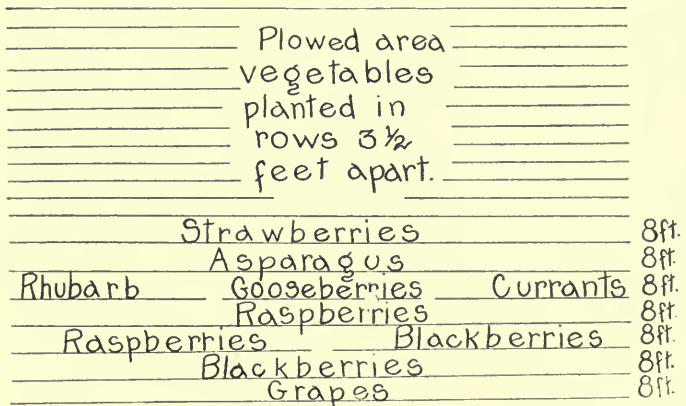 Plowed area
vegetables
planted in
rows 3 ½
feet apart.
Strawberries 8ft.
Asparagus 8ft.
Rhubarb Gooseberries Currants 8ft.
Raspberries 8ft.
Raspberries Blackberries 8ft.
Blackberries 8ft.
Grapes 8ft.